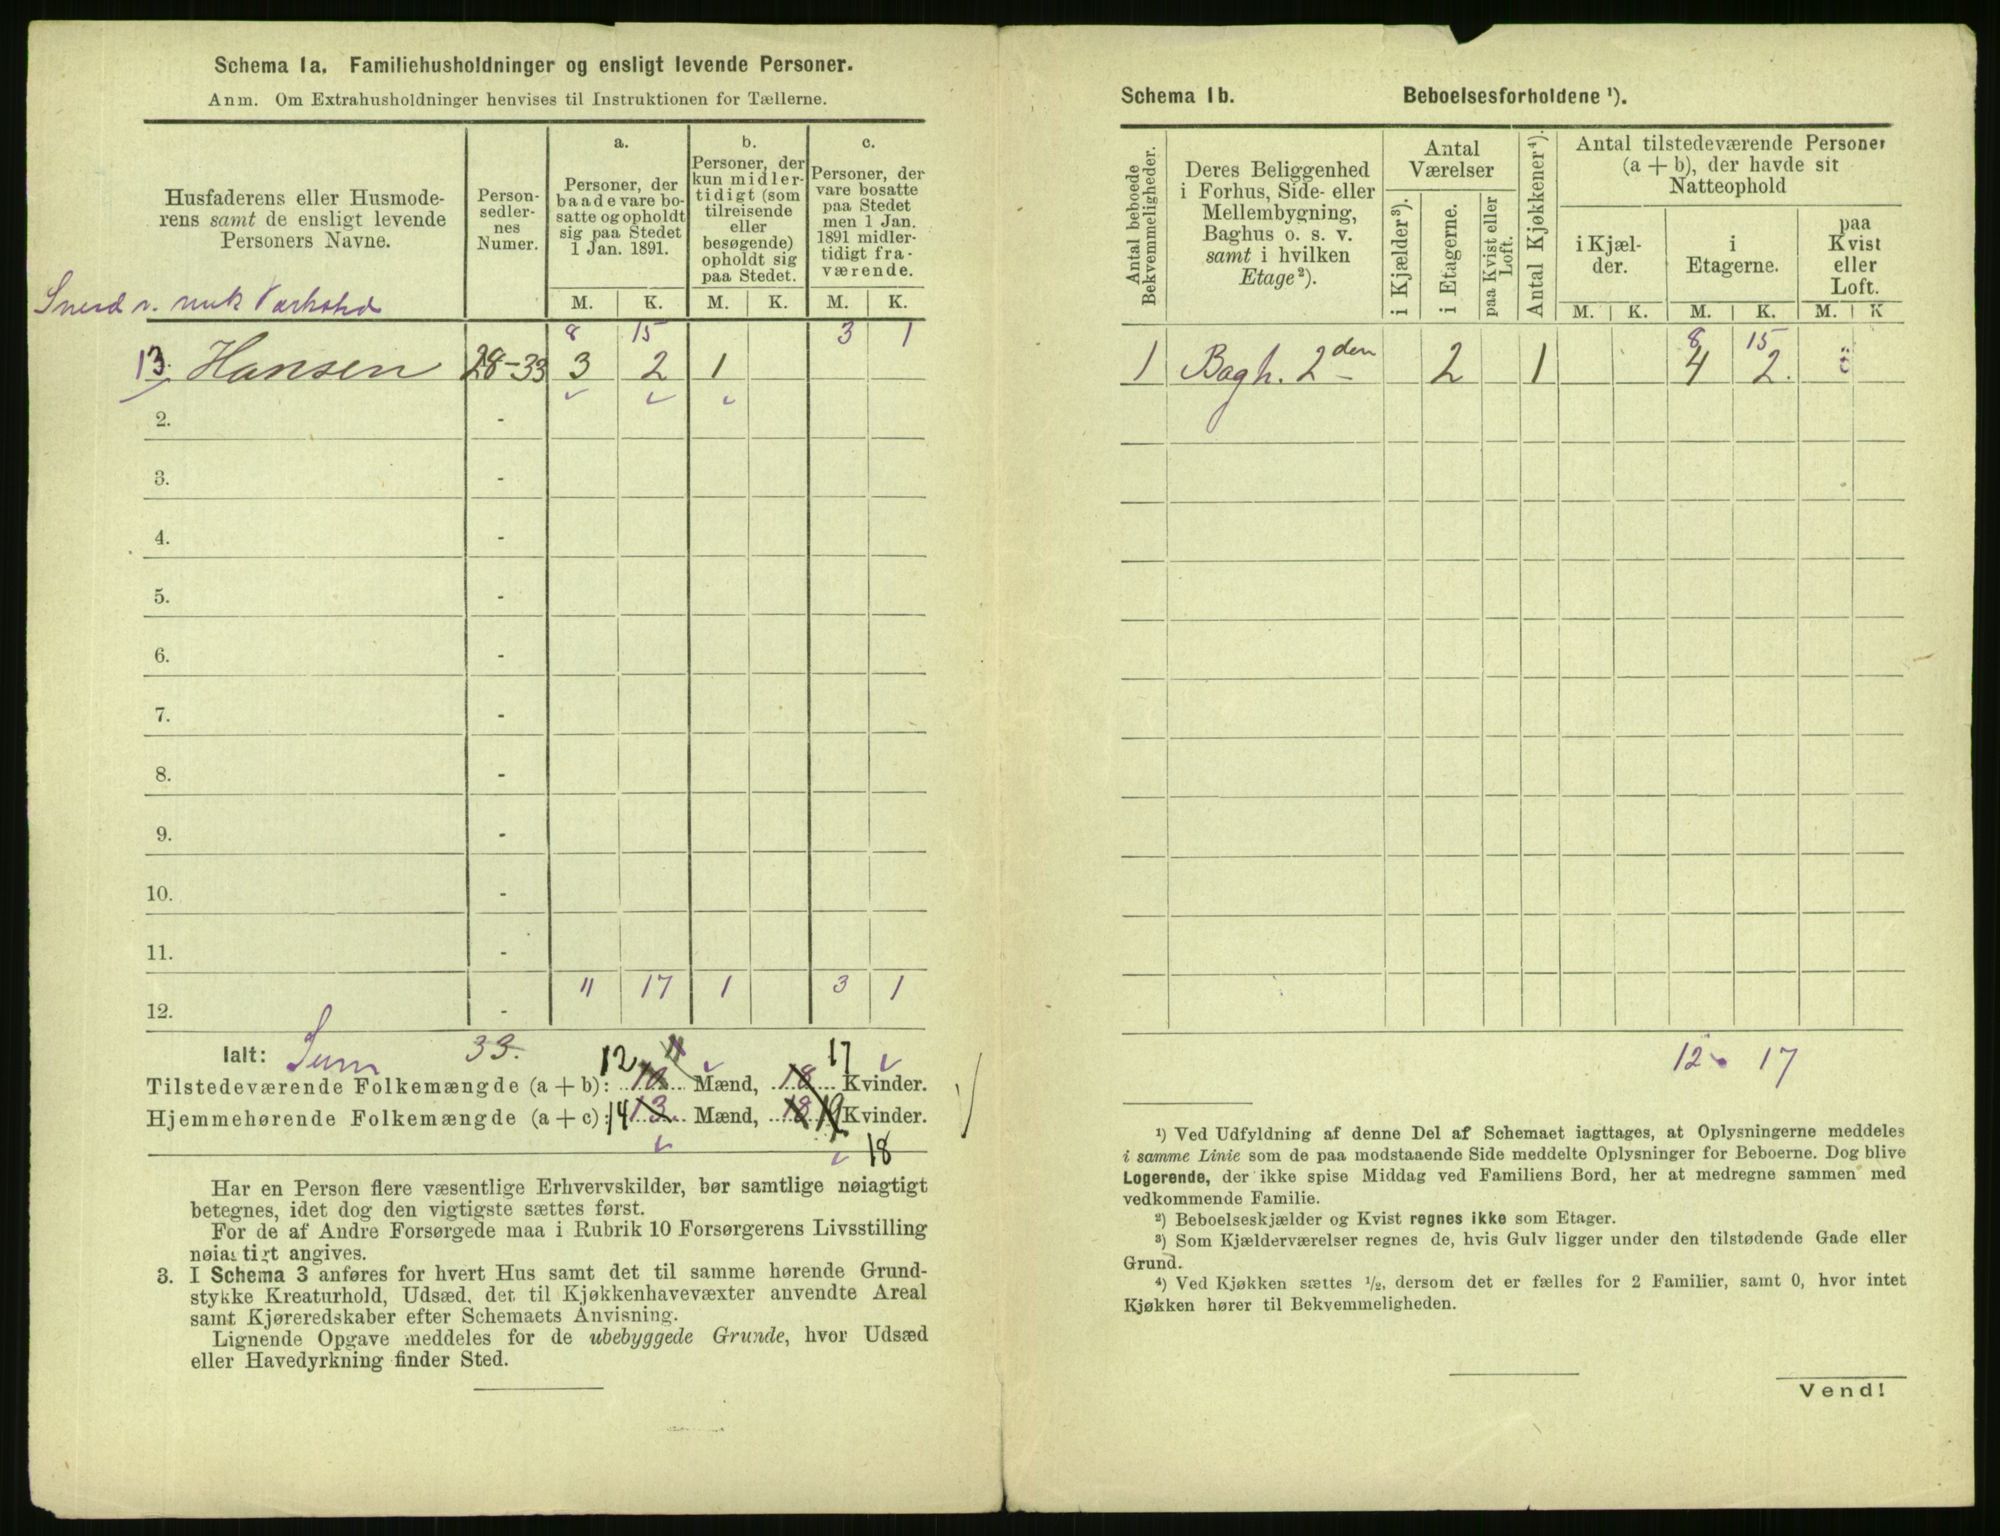 Schema 1a. Familiehusholdninger og ensligt levende Personer.
Anm. Om Extrahusholdninger henvises til Instruktionen for Tællerne.
Husfaderens eller Husmode-
rens samt de ensligt levende
Personers Navne.
Person-
sedler-
nes
Numer.
a.
Personer, der
baade vare bo-
satte og opholdt
sig paa Stedet
1 Jan. 1891.
b.
Personer, der
kun midler-
tidigt (som
tilreisende
eller
besøgende)
opholdt sig
paa Stedet.
c.
Personer, der
vare bosatte
paa Stedet
men 1 Jan.
1891 midler-
tidigt fra-
værende.
M. K. M. K. M. K.
8 15 3 1
13. Hansen 28-33 3 2 1
2. -
3. -
4. -
5. -
6. -
7. -
8. -
9. -
10. -
11. -
11 17 1 3 1
12. -
Ialt: Sum 33.
12 11 17
Tilstedeværende Folkemængde (a + b): 10 Mænd, 18 Kvinder.
Hjemmehørende Folkemængde (a + c): 14 13 Mænd, 18 19 Kvinder.
18
Har en Person flere væsentlige Erhvervskilder, bør samtlige nøiagtigt
betegnes, idet dog den vigtigste sættes først.
For de af Andre Forsørgede maa i Rubrik 10 Forsørgerens Livsstilling
nøiagtigt angives.
3. I Schema 3 anføres for hvert Hus samt det til samme hørende Grund-
stykke Kreaturhold, Udsæd, det til Kjøkkenhavevæxter anvendte Areal
samt Kjøreredskaber efter Schemaets Anvisning.
Lignende Opgave meddeles for de ubebyggede Grunde, hvor Udsæd
eller Havedyrkning finder Sted.
Schema 1b. Beboelsesforholdene ¹).
Antal beboede
Bekvemmeligheder.
Deres Beliggenhed
i Forhus, Side- eller
Mellembygning,
Baghus o. s. v.
samt i hvilken
Etage ²).
Antal
Værelser
i Kjælder ³).
i Etagerne.
paa Kvist eller
Loft.
Antal Kjøkkener ⁴).
Antal tilstedeværende Personer
(a + b), der havde sit
Natteophold
i Kjæl-
der.
i
Etagerne.
paa
Kvist
eller
Loft.
M. K. M. K. M. K
8 15
1 Bagh. 2den 2 1 4 2
12 17
¹) Ved Udfyldning af denne Del af Schemaet iagttages, at Oplysningerne meddeles
i samme Linie som de paa modstaaende Side meddelte Oplysninger for Beboerne. Dog blive
Logerende, der ikke spise Middag ved Familiens Bord, her at medregne sammen med
vedkommende Familie.
²) Beboelseskjælder og Kvist regnes ikke som Etager.
³) Som Kjælderværelser regnes de, hvis Gulv ligger under den tilstødende Gade eller
Grund.
⁴) Ved Kjøkken sættes ¹/₂, dersom det er fælles for 2 Familier, samt 0, hvor intet
Kjøkken hører til Bekvemmeligheden.
Vend!